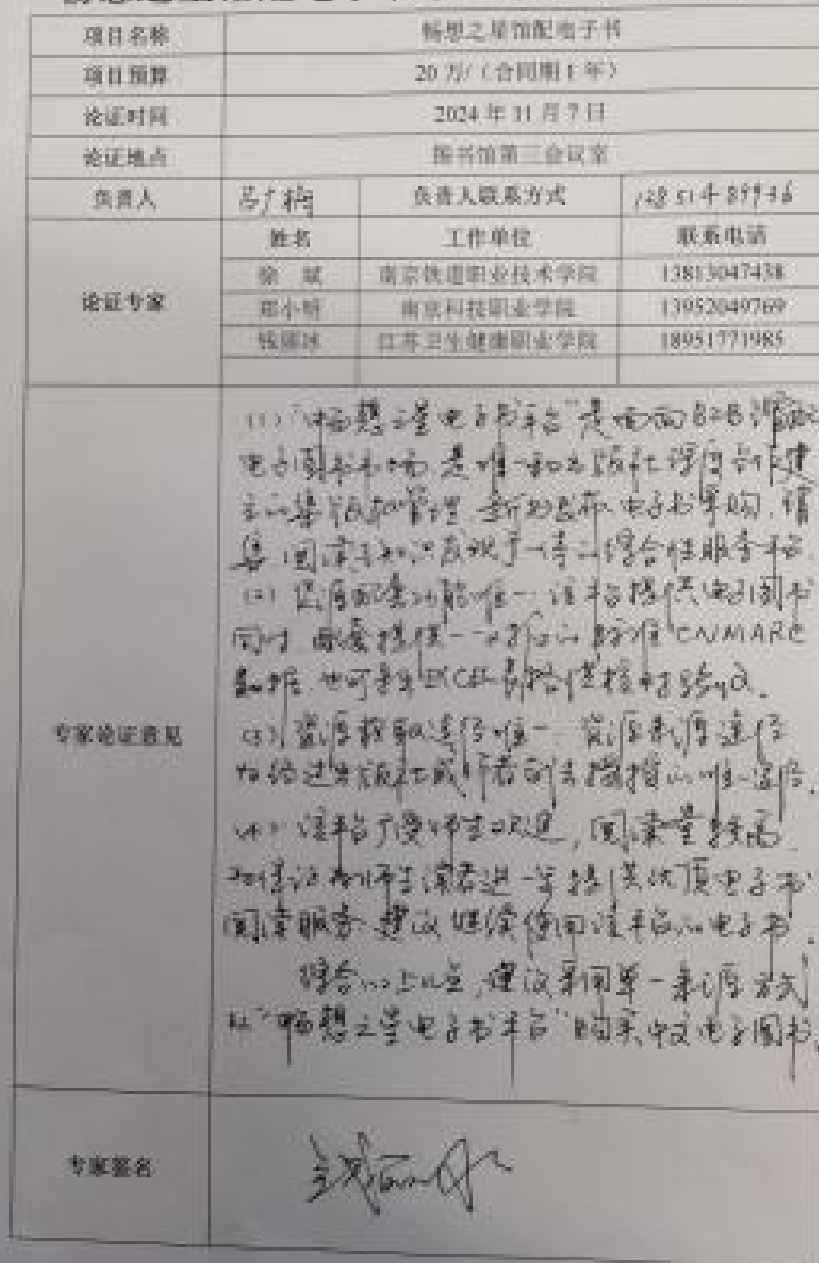 项目名称 畅想之星馆配电子书
项目预算 20万/（合同期1年）
论证时间 2024年11月7日
论证地点 图书馆第三会议室
负责人 负责人联系方式
论证专家 姓名 工作单位 联系电话
徐 斌 南京铁道职业技术学院 13813047438
郑小明 南京科技职业学院 13952049769
钱丽冰 江苏卫生健康职业学院 18951771985
专家论证意见
（1）“畅想之星电子书平台”是面向B2B馆配
电子图书市场，是唯一和出版社深度合作建
立的集版权管理、新书发布、电子书采购、
阅读于一体的综合性服务平台。
（2）唯一，该平台提供电子图书
同时，标准CNMARC
数据，也可
（3）资源获取途径唯一，资源来源途径
为经过出版社或作者合法授权的唯一途径。
（4）该平台深受师生欢迎，阅读量较高，
为师生读者进一步提供优质电子书
阅读服务，建议继续使用该平台的电子书。
综合以上几点，建议采用单一来源方式
从“畅想之星电子书平台”购买中文电子图书。
专家签名 钱丽冰